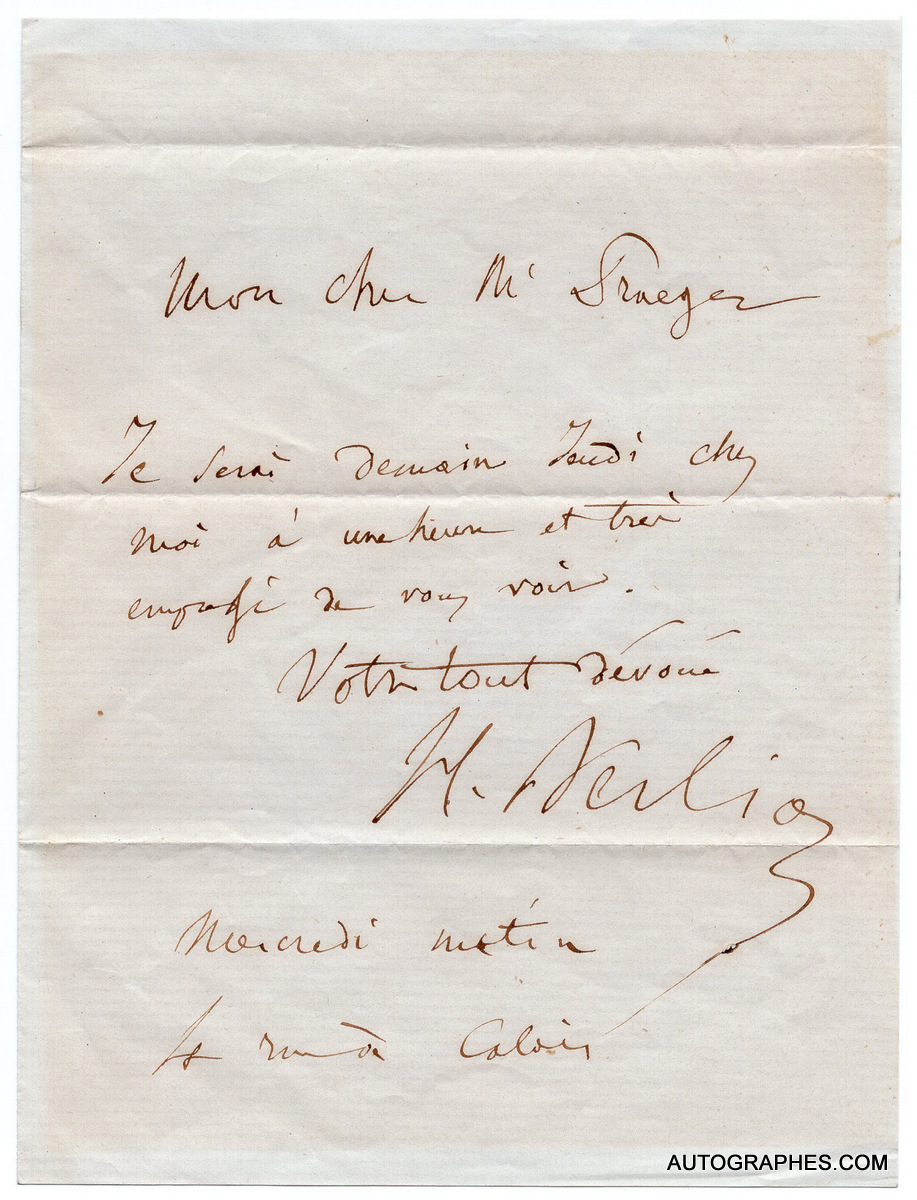 Mon cher Mr Praeger
Je serai demain Jeudi chez
moi à une heure et très
empressé de vous voir.
Votre tout dévoué
H. Berlioz
Mercredi matin
4 rue de Calais
AUTOGRAPHES.COM